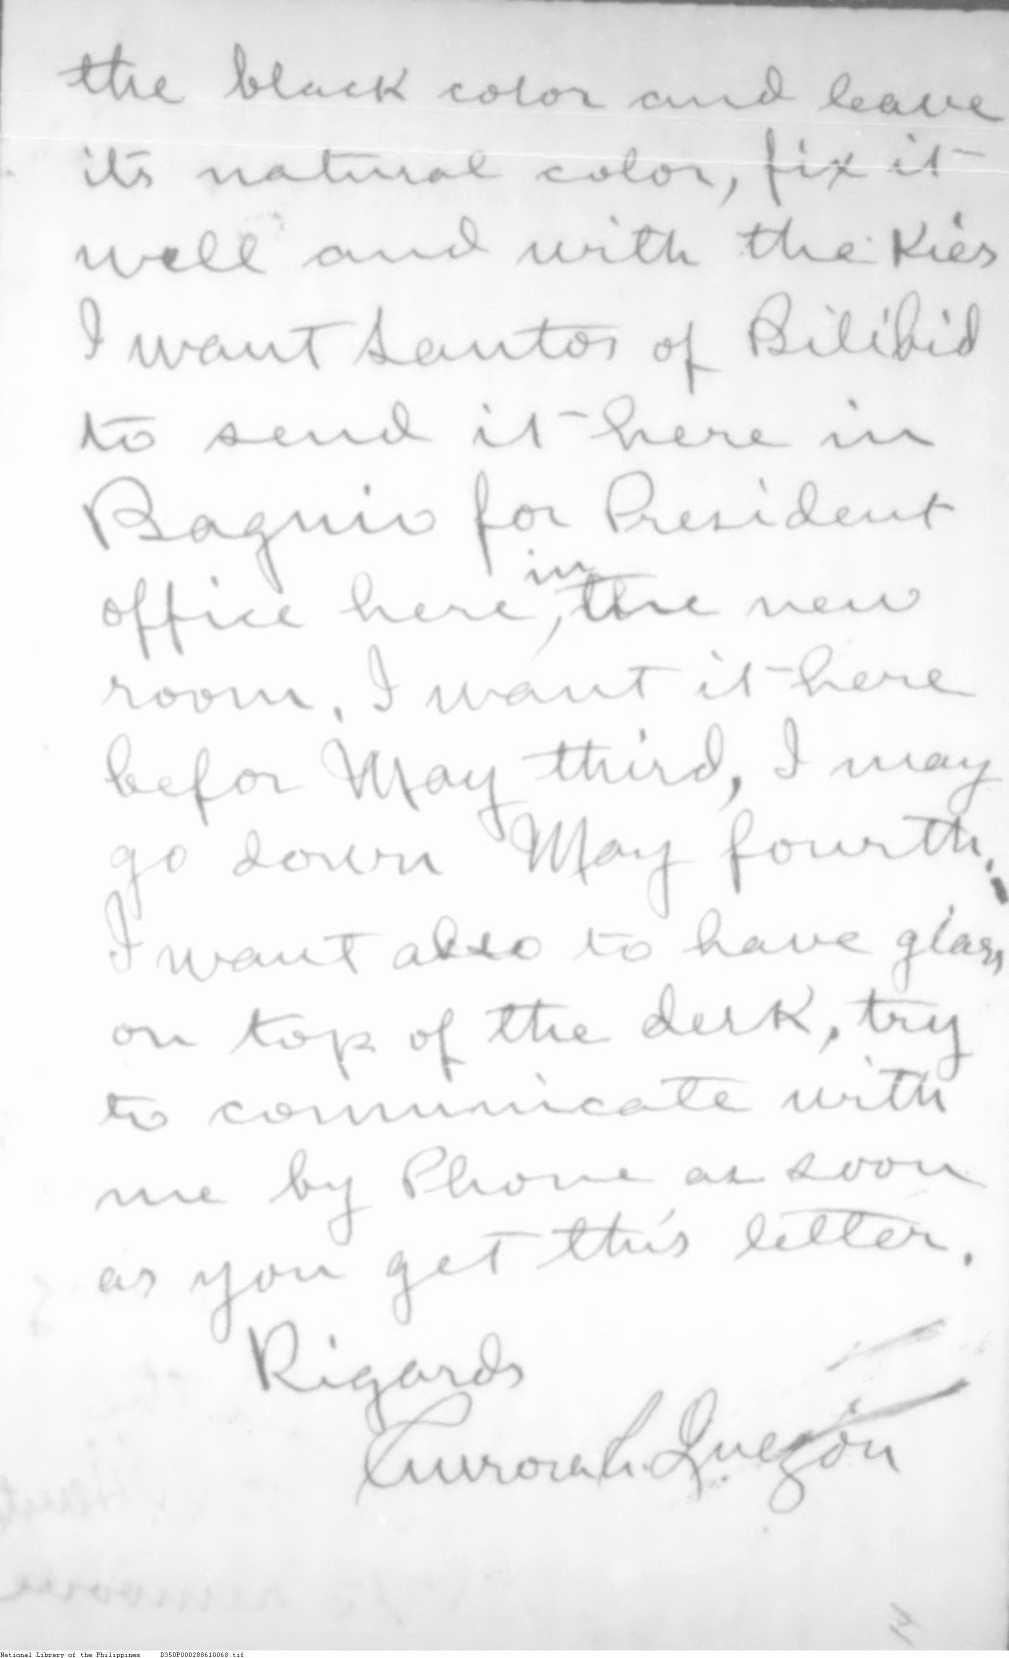 the black color and leave
its natural color, fix it
well and with the Kies
I want Santos of Bilibid
to send it here in
Baguio for President
office here, in the new
room. I want it here
befor May third, I may
go down May fourth.
I want also to have glass
on top of the desk, try
to comunicate with
me by Phone as soon
as you get this letter.
Rigards
Aurora A. Quezon
National Library of the Philippines D350P000288610068.tif